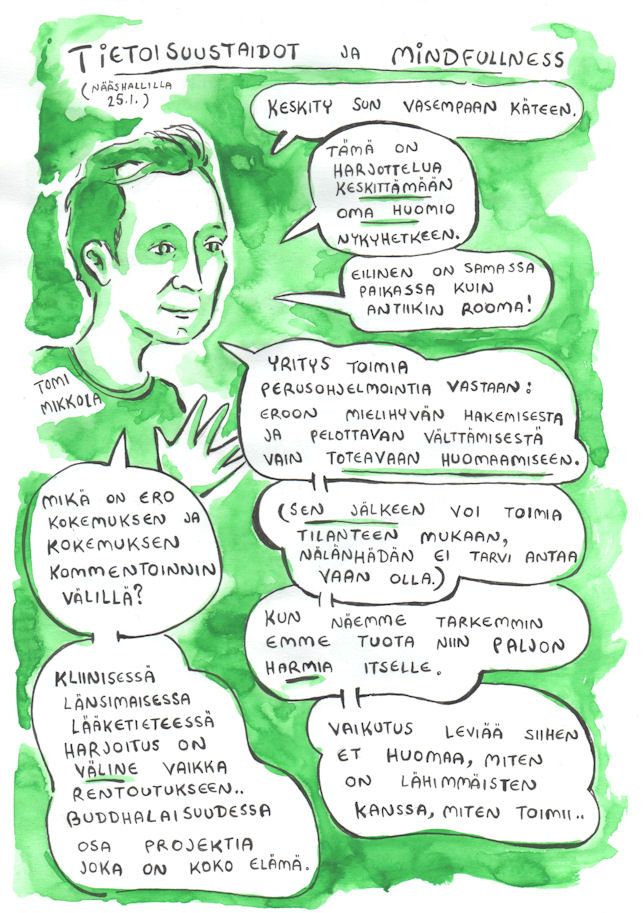 TIETOISUUSTAIDOT JA MINDFULLNESS
(NÄÄSHALLILLA
25.1.)
KESKITY SUN VASEMPAAN KÄTEEN.
TÄMÄ ON
HARJOTTELUA
KESKITTÄMÄÄN
OMA HUOMIO
NYKYHETKEEN.
EILINEN ON SAMASSA
PAIKASSA KUIN
ANTIIKIN ROOMA!
TOMI
MIKKOLA
YRITYS TOIMIA
PERUSOHJELMOINTIA VASTAAN:
EROON MIELIHYVÄN HAKEMISESTA
JA PELOTTAVAN VÄLTTÄMISESTÄ
VAIN TOTEAVAAN HUOMAAMISEEN.
(SEN JÄLKEEN VOI TOIMIA
TILANTEEN MUKAAN,
NÄLÄNHÄDÄN EI TARVI ANTAA
VAAN OLLA.)
KUN NÄEMME TARKEMMIN
EMME TUOTA NIIN PALJON
HARMIA ITSELLE.
VAIKUTUS LEVIÄÄ SIIHEN
ET HUOMAA, MITEN
ON LÄHIMMÄISTEN
KANSSA, MITEN TOIMII..
MIKÄ ON ERO
KOKEMUKSEN JA
KOKEMUKSEN
KOMMENTOINNIN
VÄLILLÄ?
KLIINISESSÄ
LÄNSIMAISESSA
LÄÄKETIETEESSÄ
HARJOITUS ON
VÄLINE VAIKKA
RENTOUTUKSEEN..
BUDDHALAISUUDESSA
OSA PROJEKTIA
JOKA ON KOKO ELÄMÄ.